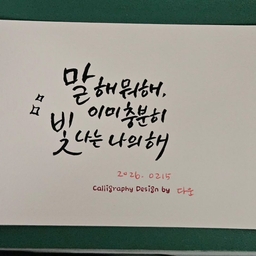 말해뭐해,
이미충분히
빛나는 나의해
2026. 0215
Calligraphy Design by 다온